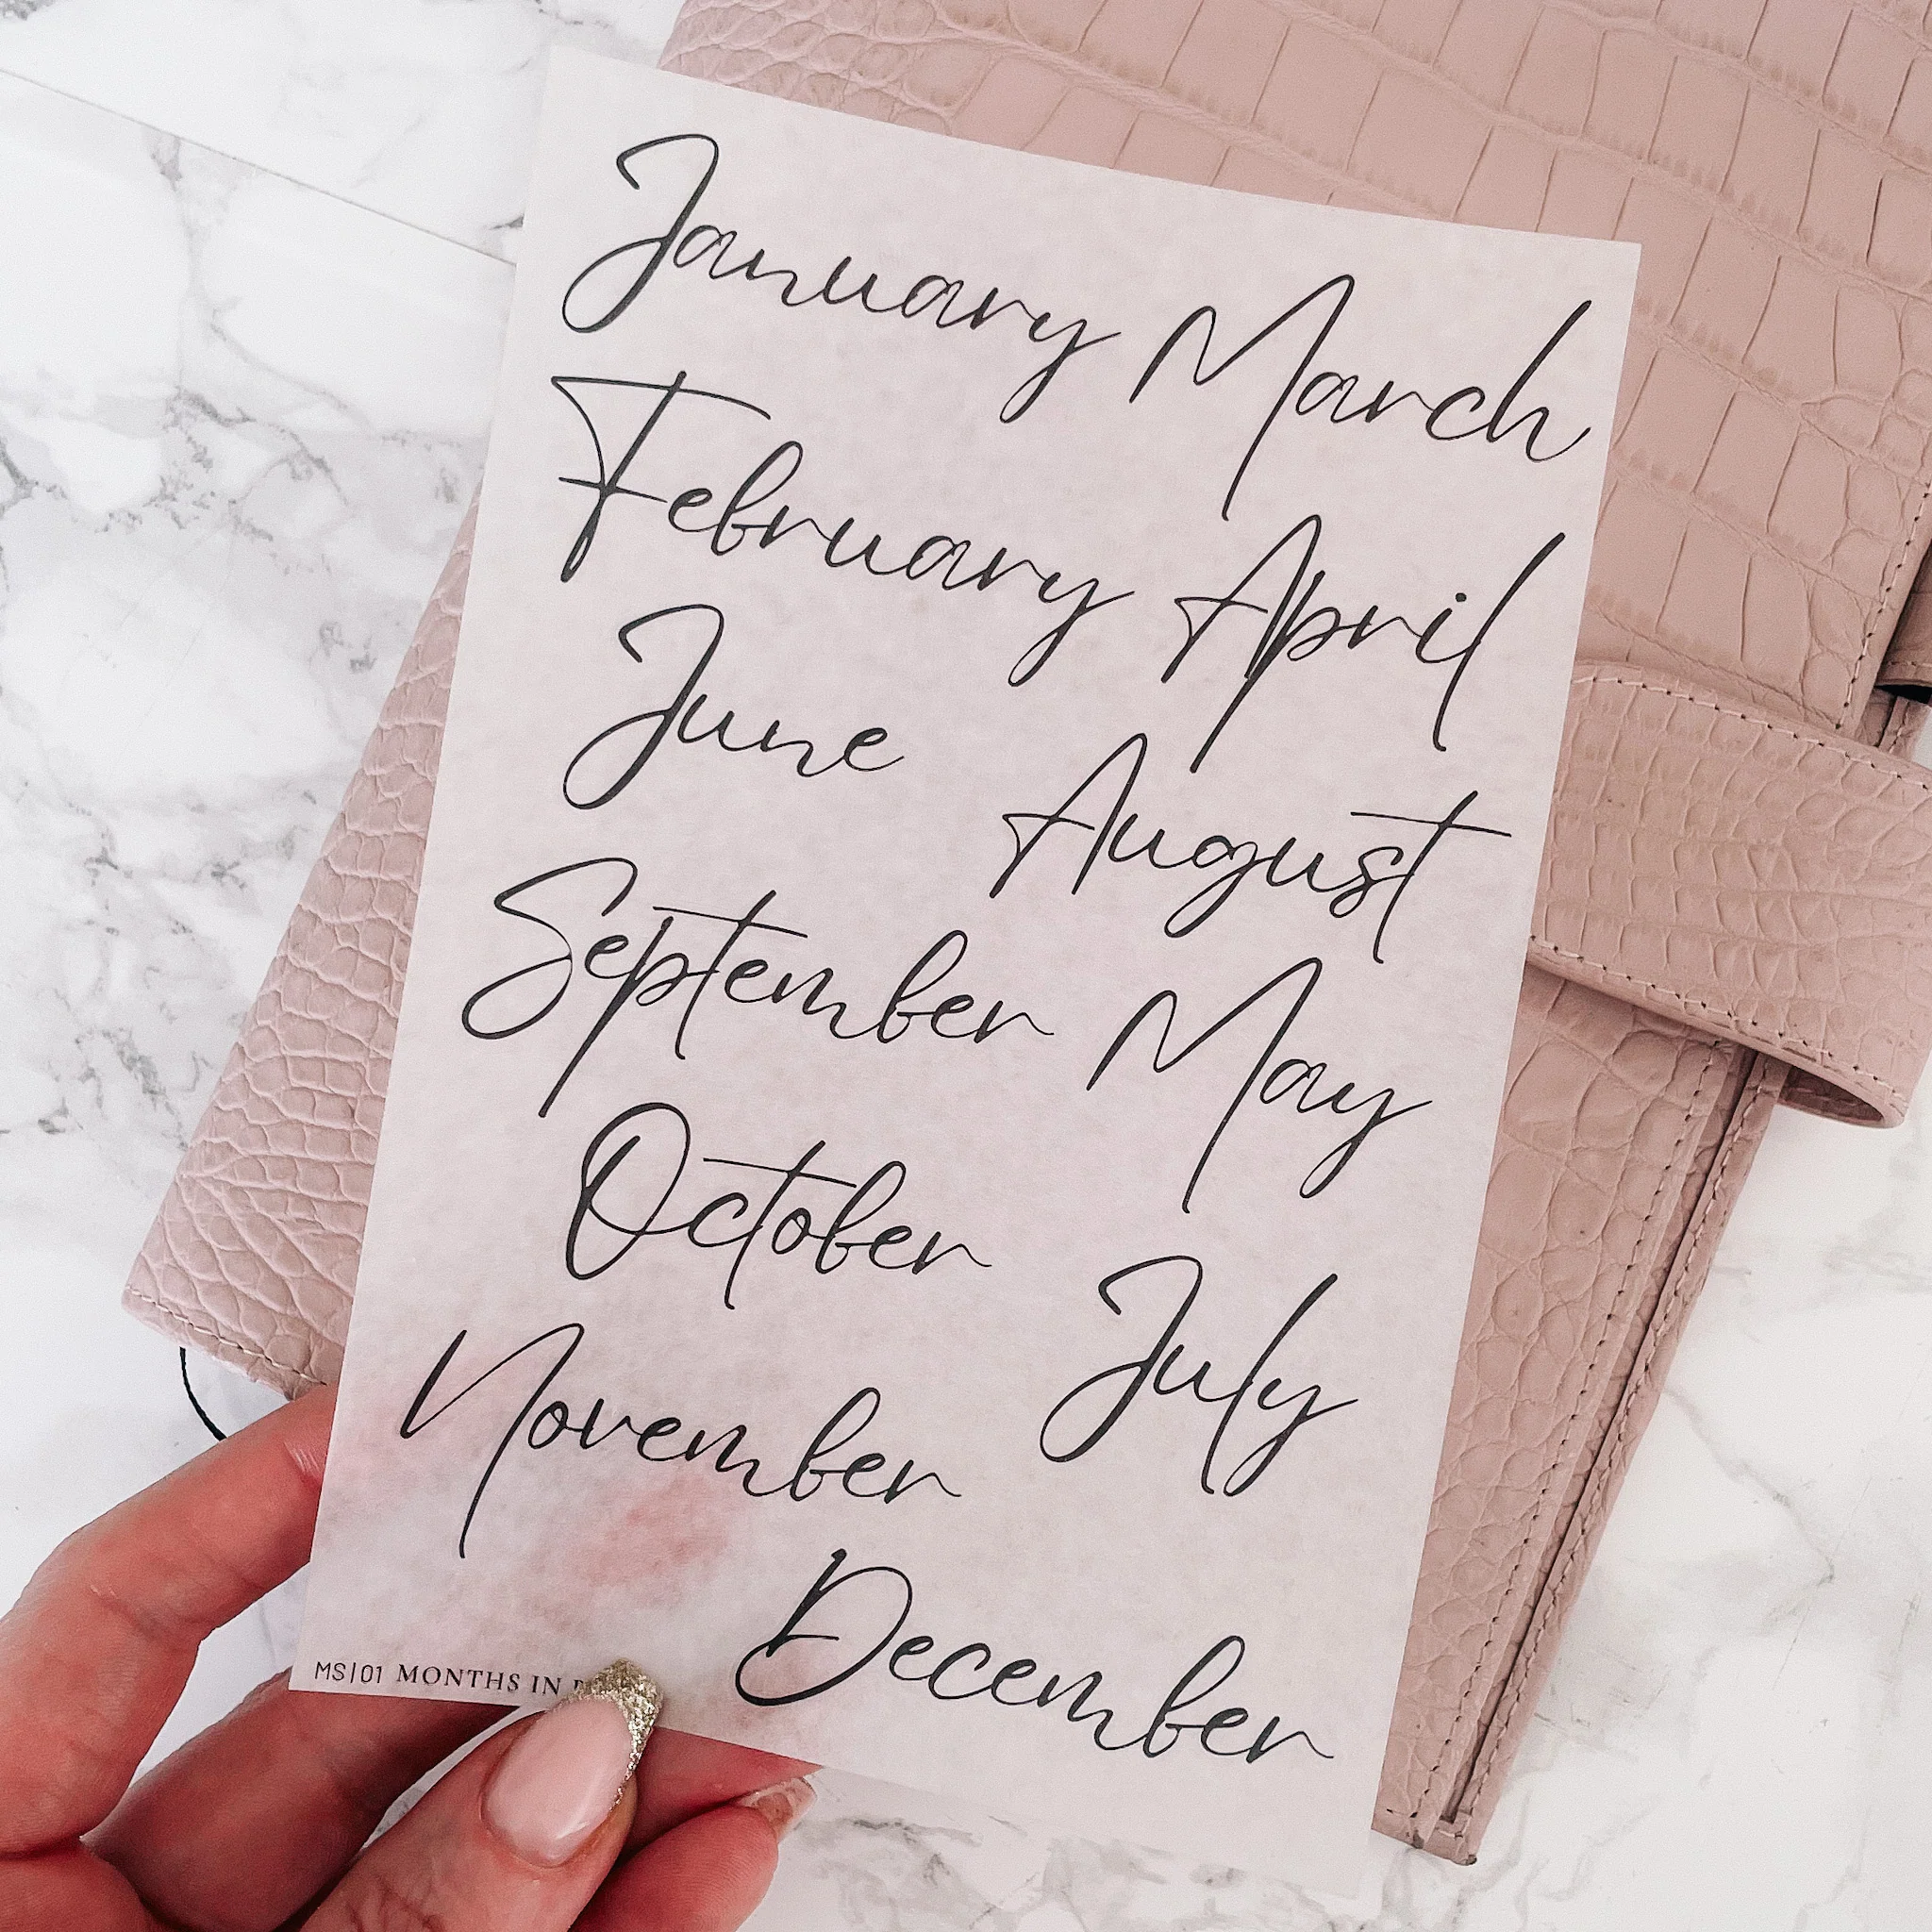 January March
February April
June August
September May
October July
November
December
MS|01 MONTHS IN